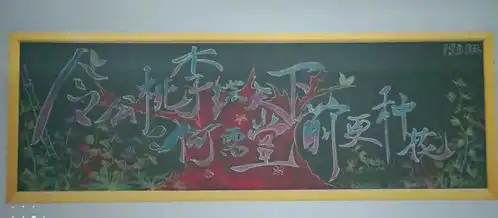 令公桃李满天下
何需堂前更种花